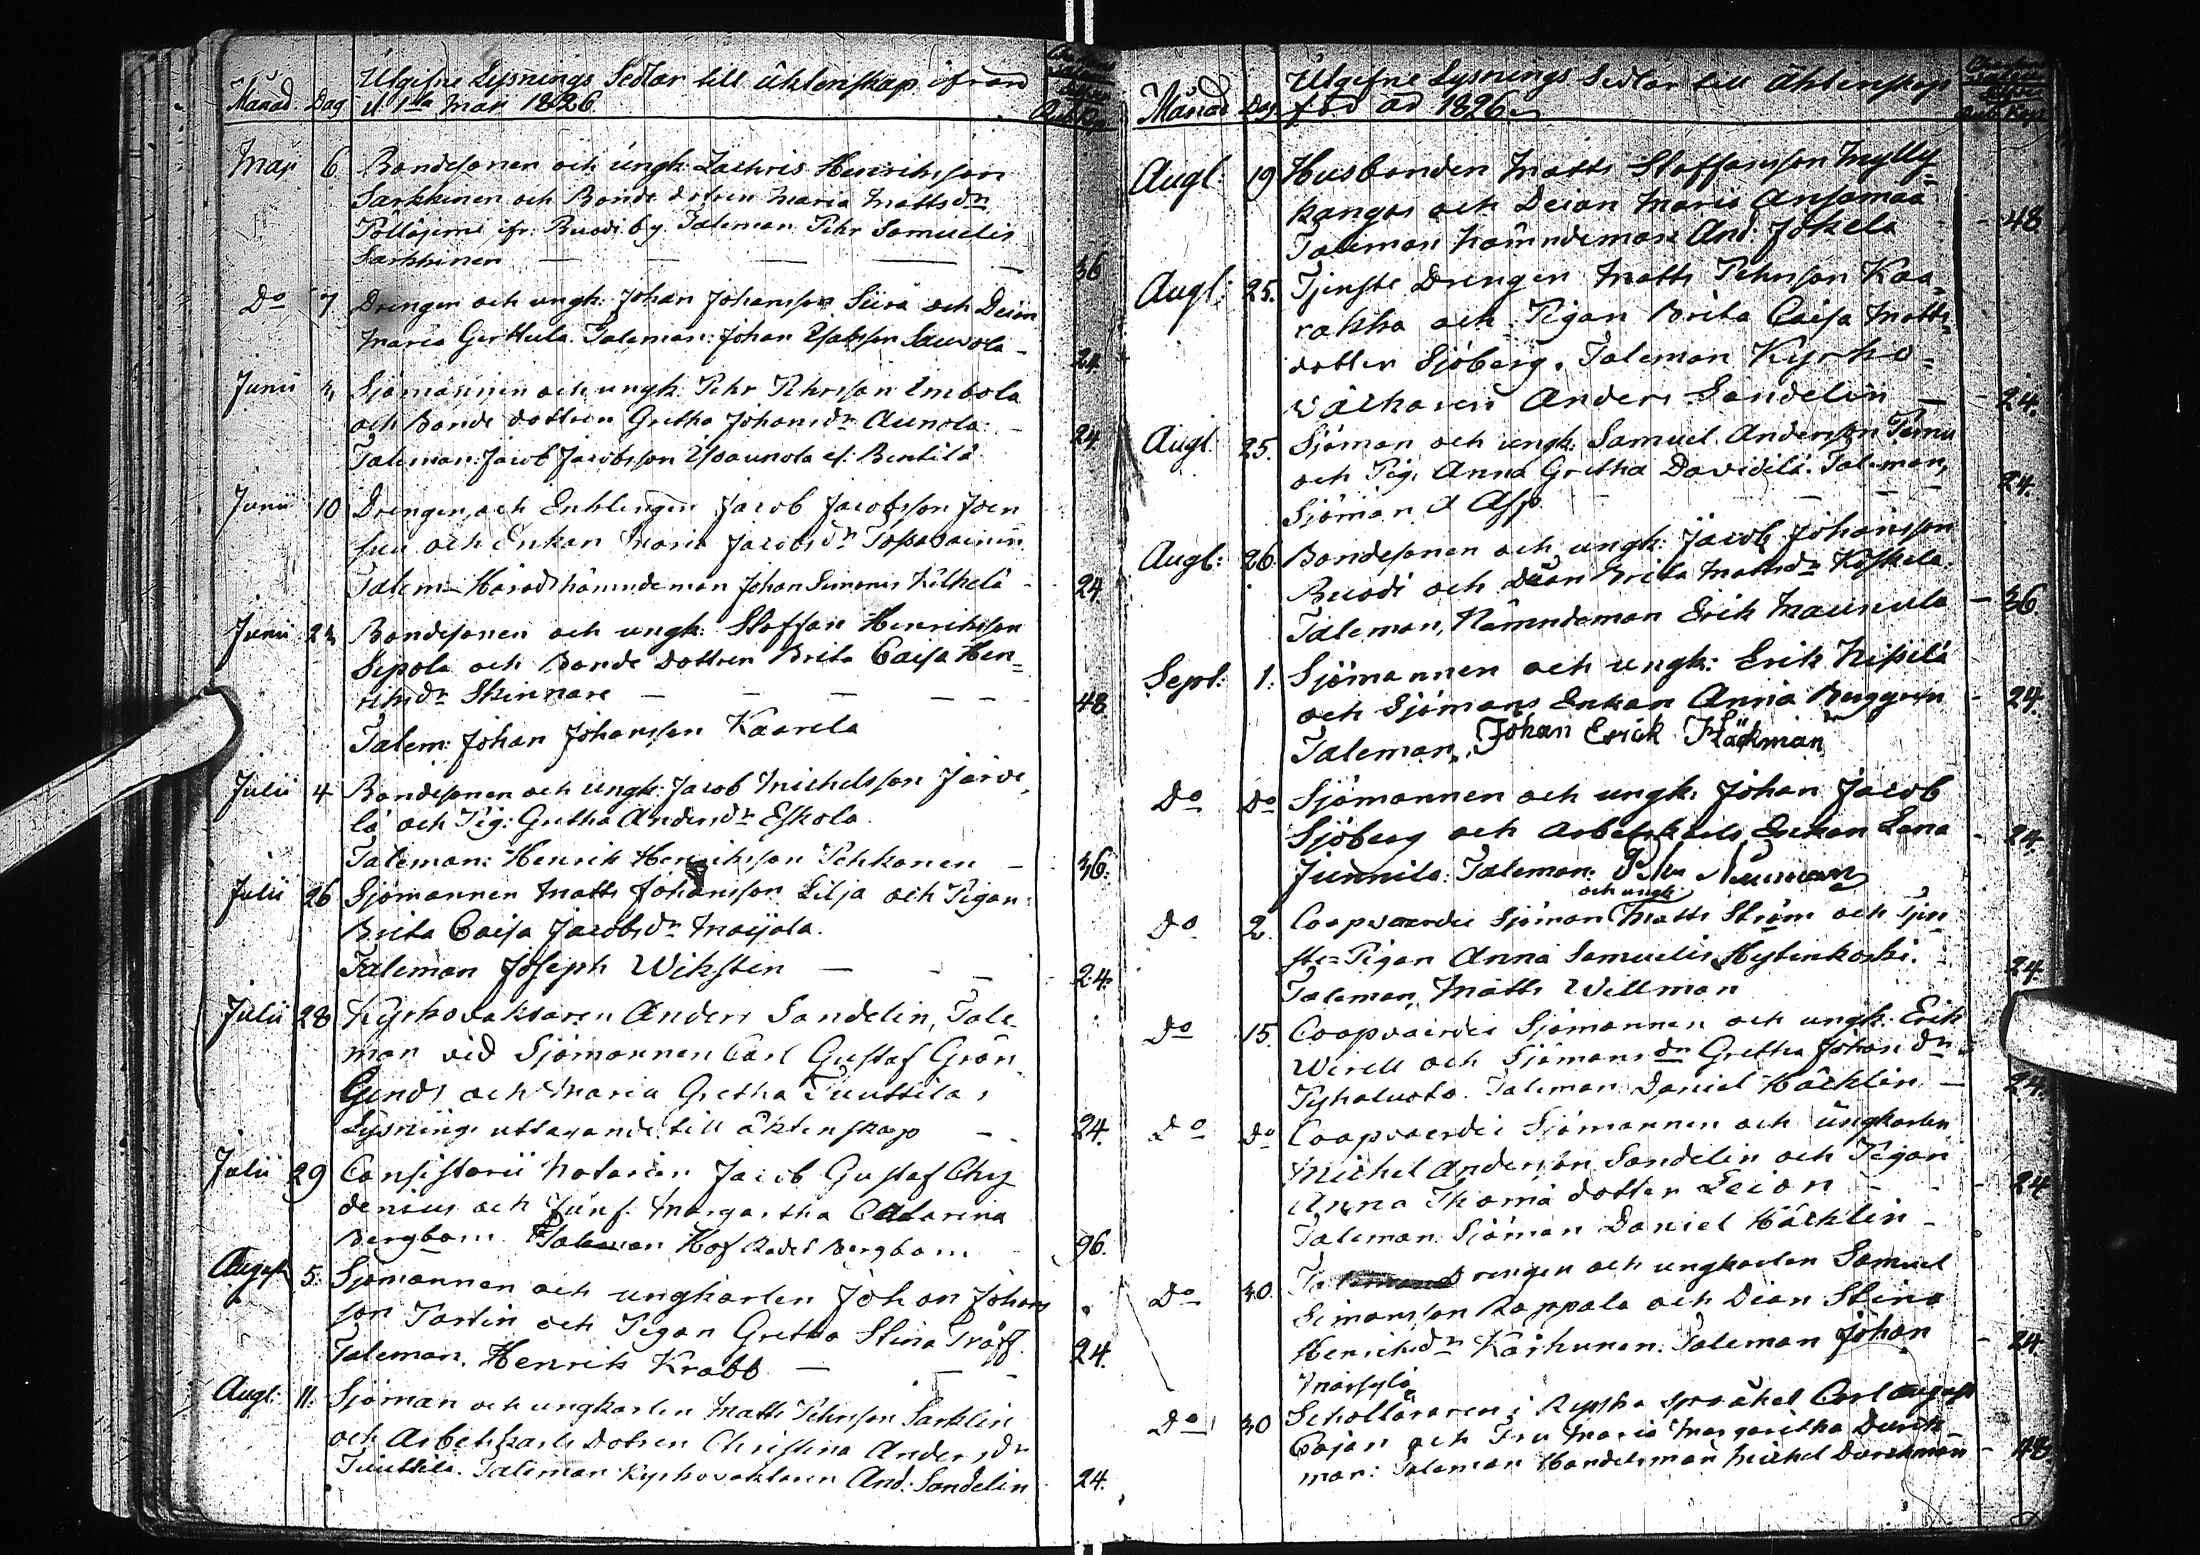 Utgifne Lysnings Sedlar till äktenskap ifrån
Månad. Dag d 1sta Maii 1826.
Maji 6 Bondesonen och ungk. Zachris Henriksson
Sarkkinen och Bonde dotren Maria Mattsdr
Pölläjemi ifr. Ruodi by. Taleman Pehr Samuelis
Sarkkinen — — — — 36
Do 7 Drengen och ungk: Johan Johansson Siira och Deian
Maria Gerttula. Taleman: Johan Isaksson Sauvola - 24.
Junii 3 Sjömannen och ungk. Pehr Pehrsson Imbola
och Bonde dottren Gretha Johansdr Aunola. - 24.
Taleman: Jacob Jacobsson Isoaunola el: Bentilä
Junii 10 Drengen och Enklingen Jacob Jacobsson Joen
suu och Enkan Maria Jacobsdr Topavainen
Talem: Härads nämndeman Johan Simonis Kilkelä - 24.
Junii 23 Bondesonen och ungk: Staffan Henriksson
Sepola och Bonde Dottren Brita Caisa Hen=
riksdr Skinnare — — — — 48
Talem: Johan Johansson Kaarela
Julii 4 Bondesonen och ungk: Jacob Michelsson Järve,
lä och Pig: Gretha Andersdr Eskola.
Taleman: Henrik Henriksson Pehkonen — 36.
Julii 26 Sjömannen Matts Johansson Lilja och Pigan:
Brita Caisa Jacobsdr Maijala.
Taleman Joseph Wiksten — - - 24.
Julii 28 Kyrkovaktaren Anders Sandelin, Tale-
man vid Sjömannen Carl Gustaf Grön
lunds och Maria Gretha Tuuttila,
Lysnings uttagande till äktenskap - - 24.
Julii 29 Consistorii Notarien Jacob Gustaf Chy
denius och Jungf. Margartha Catarina
Bergbom Taleman Hof Rådet Bergbom 96.
August 5. Sjömannen och ungkarlen Johan Johans
son Partin och Pigan Gretha Stina Träff.
Taleman. Henrik Krabb — — - 24.
Augt: 11. Sjöman och ungkarlen Matts Pehrsson Sarklin
och Arbetskarls Dotren Christina Andersdr
Tuuttila. Taleman Kyrkovaktaren And: Sandelin 24.
Utgifne Lysnings Sedlar till Äktenskap
Månad Dag för år 1826.
Rub. Kop.
Augt: 19 Husbonden Matts Staffansson Mylly
kangas och Deian Maria Ansamaa
Taleman Nämndeman And: Jokela - 48.
Augt: 25. Tjenste Drengen Matts Pehrsson Kaa=
rakka och Pigan Brita Caisa Matts=
dotter Sjöberg. Taleman Kyrko=
väktaren Anders Sandelin — - 24.
Augt. 25. Sjöman och ungk: Samuel Andersson Temu
och Pig. Anna Gretha Davidilä. Taleman,
Sjöman A Asp. - - - 24.
Augt: 26 Bondesonen och ungk: Jacob Johansson
Ruodi och Deian Brita Mattsdr Koskela.
Taleman, Nämndeman Erik Maunula - 36
Sept: 1. Sjömannen och ungk: Erik Nipilä
och Sjömans Enkan Anna Berggren - 24.
Taleman. Johan Erick Häckman
Do Do Sjömannen och ungk. Johan Jacob
Sjöberg och Arbetskarls Enkan Lena - 24.
Junnila. Taleman.
och ungk:
Do 2. Coopvaerdie Sjöman Matts Ström och Tjen
ste=Pigan Anna Samuelis Myllinkoski. 24.
Taleman, Matts Willman
Do 15. Coopvaerdie Sjömannen och ungk: Erik
Wirell och Sjömans dr Gretha Johans dr
Pyhaluoto. Taleman Daniel Häcklin — 24.
Do Do Coopvaerdie Sjömannen och ungkarlen
Michel Andersson Sandelin och Pigan
Anna Thomä dotter Leion - - 24
Taleman. Sjöman Daniel Häcklin -
Do 30. Drengen och ungkarlen Samuel
Simonsson Rappala och Deian Stina
Henriksdr Karhunen. Taleman Johan - 24
Marsylä
Do 30 Scholläraren i Ryska språket Carl August
Cajan och Fru Maria Margaretha Durck
man: Taleman Handelsman Michel Durckman - 48.